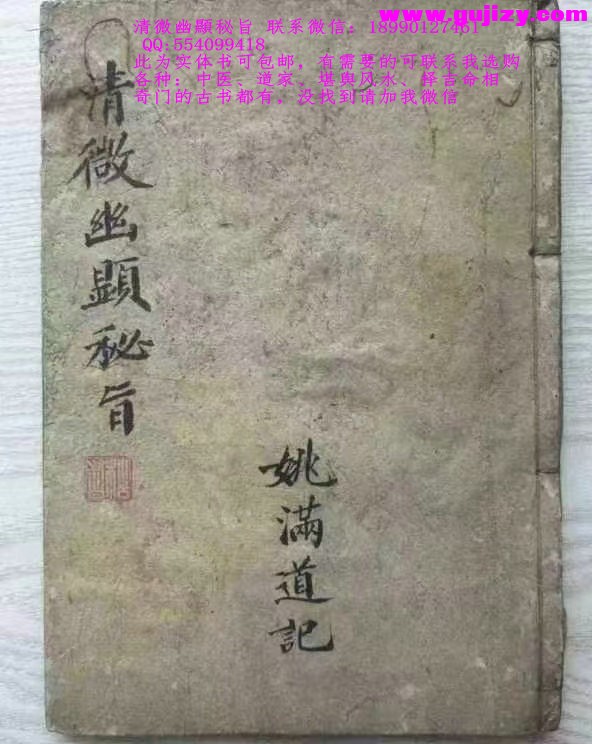 www.gujizy.com
清微幽顯秘旨 联系微信：18990127461
QQ:554099418
此为实体书可包邮，有需要的可联系我选购
各种：中医、道家、堪舆风水、择吉命相
奇门的古书都有，没找到请加我微信
清微幽顯秘旨
姚滿道記